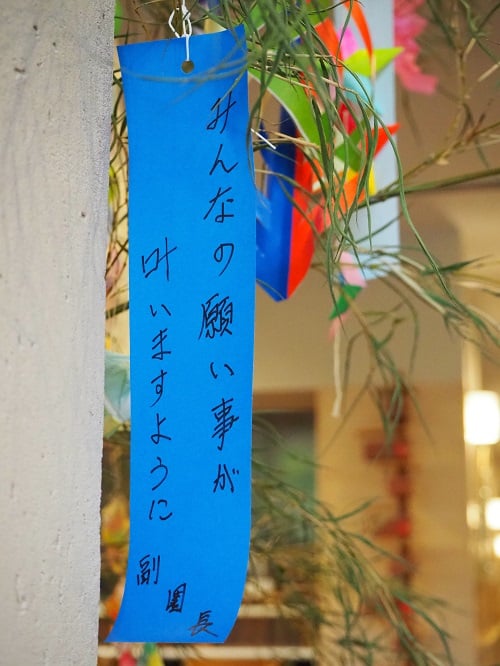 みんなの願い事が
叶いますように
副園長